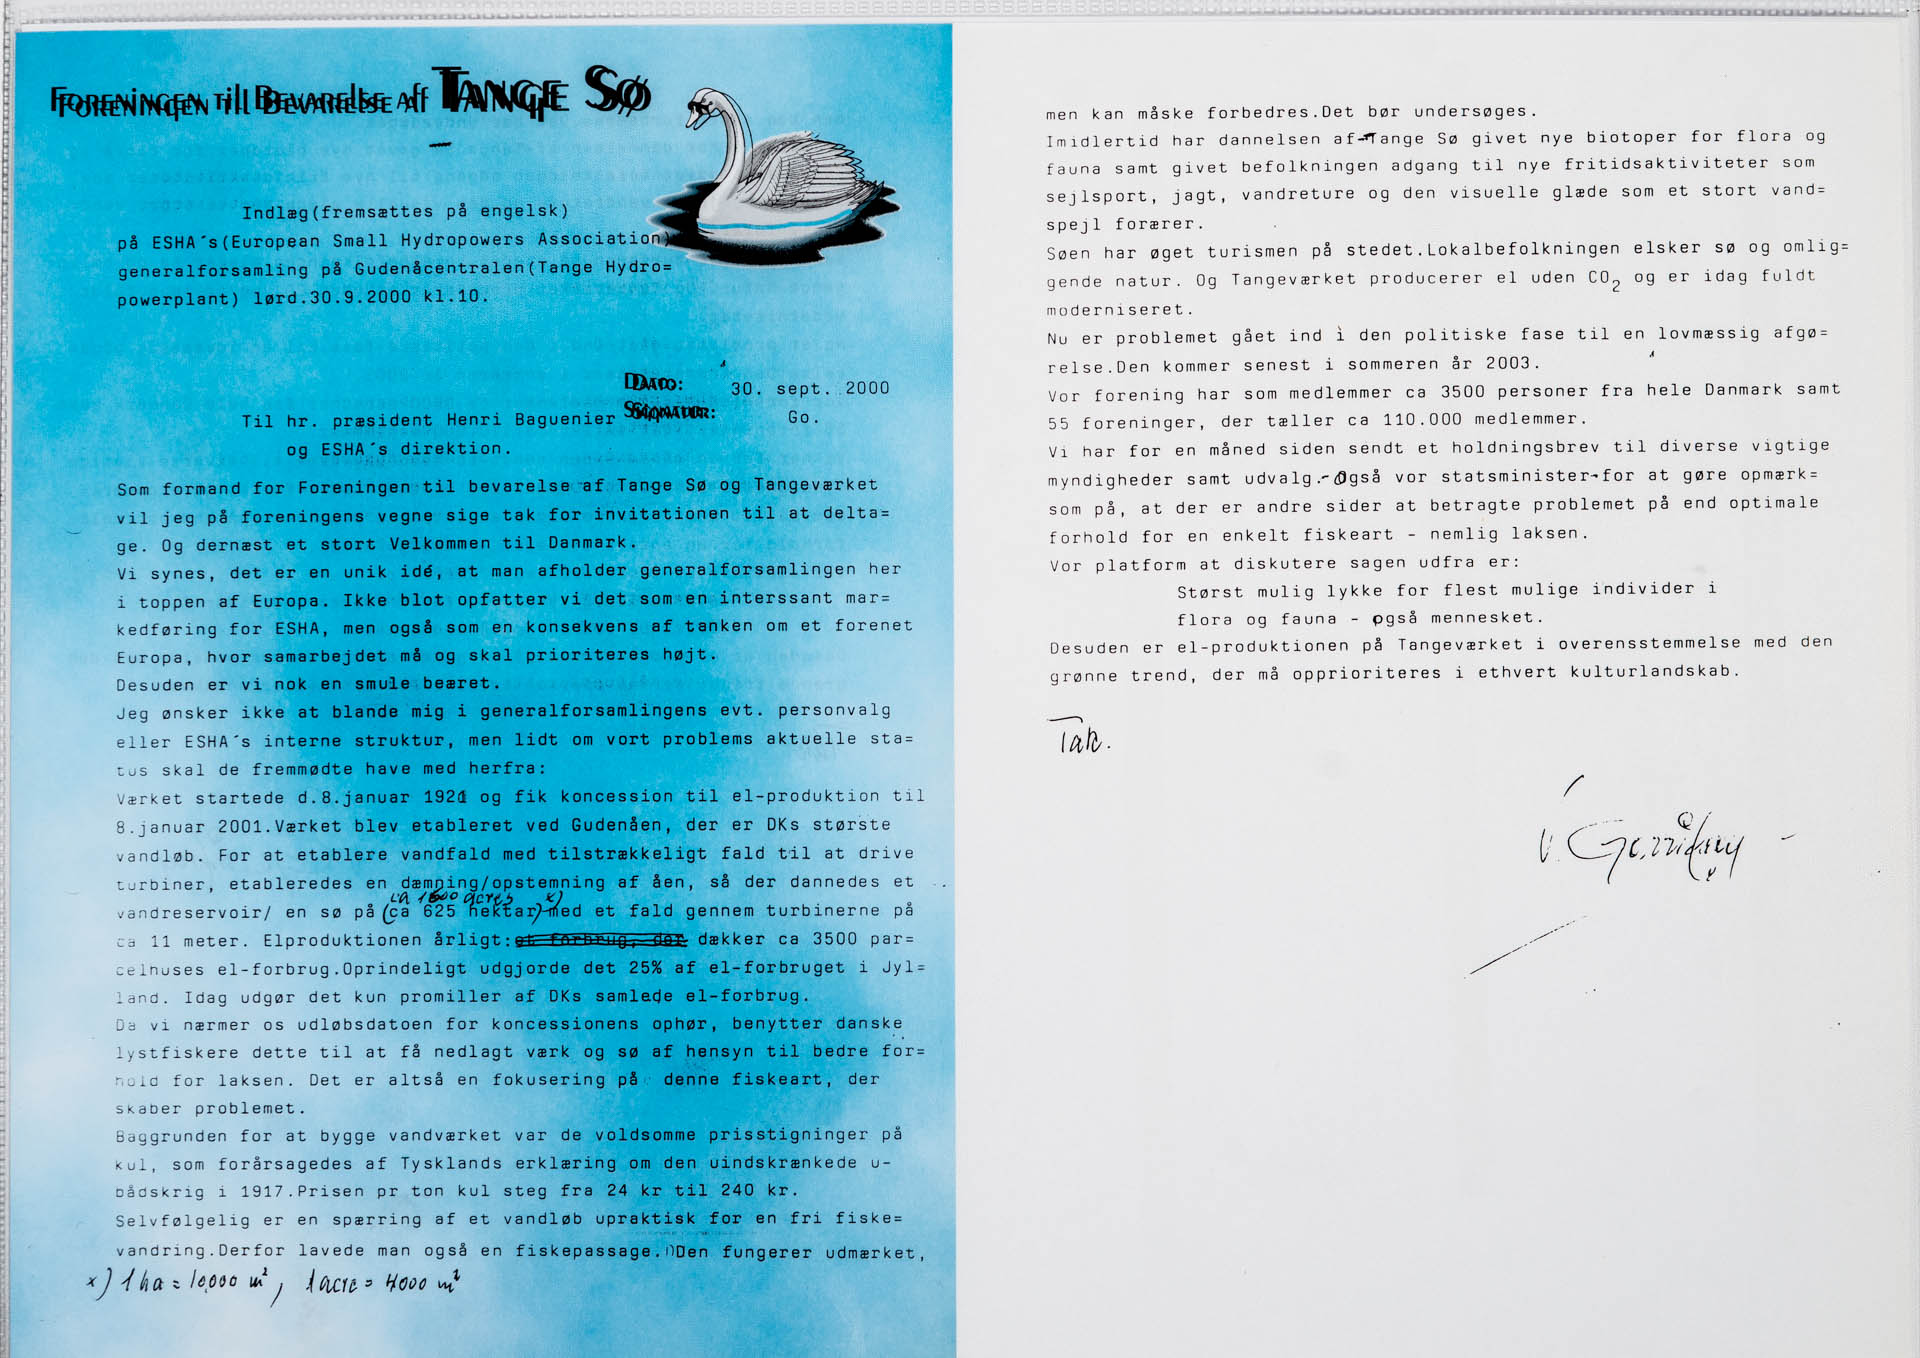 Foreningen til Bevarelse af Tange Sø
Indlæg(fremsættes på engelsk)
på ESHA´s(European Small Hydropowers Association)
generalforsamling på Gudenåcentralen(Tange Hydro=
powerplant) lørd.30.9.2000 kl.10.
Dato: 30. sept. 2000
Signatur: Go.
Til hr. præsident Henri Baguenier
og ESHA´s direktion.
Som formand for Foreningen til bevarelse af Tange Sø og Tangeværket
vil jeg på foreningens vegne sige tak for invitationen til at delta=
ge. Og dernæst et stort Velkommen til Danmark.
Vi synes, det er en unik idé, at man afholder generalforsamlingen her
i toppen af Europa. Ikke blot opfatter vi det som en interssant mar=
kedføring for ESHA, men også som en konsekvens af tanken om et forenet
Europa, hvor samarbejdet må og skal prioriteres højt.
Desuden er vi nok en smule beæret.
Jeg ønsker ikke at blande mig i generalforsamlingens evt. personvalg
eller ESHA´s interne struktur, men lidt om vort problems aktuelle sta=
tus skal de fremmødte have med herfra:
Værket startede d.8.januar 1921 og fik koncession til el-produktion til
8.januar 2001.Værket blev etableret ved Gudenåen, der er DKs største
vandløb. For at etablere vandfald med tilstrækkeligt fald til at drive
turbiner, etableredes en dæmning/opstemning af åen, så der dannedes et
ca 1600 acres x)
vandreservoir/ en sø på (ca 625 hektar) med et fald gennem turbinerne på
ca 11 meter. Elproduktionen årligt: et forbrug, der dækker ca 3500 par=
celhuses el-forbrug.Oprindeligt udgjorde det 25% af el-forbruget i Jyl=
land. Idag udgør det kun promiller af DKs samlede el-forbrug.
Da vi nærmer os udløbsdatoen for koncessionens ophør, benytter danske
lystfiskere dette til at få nedlagt værk og sø af hensyn til bedre for=
hold for laksen. Det er altså en fokusering på denne fiskeart, der
skaber problemet.
Baggrunden for at bygge vandværket var de voldsomme prisstigninger på
kul, som forårsagedes af Tysklands erklæring om den uindskrænkede u-
bådskrig i 1917.Prisen pr ton kul steg fra 24 kr til 240 kr.
Selvfølgelig er en spærring af et vandløb upraktisk for en fri fiske=
vandring.Derfor lavede man også en fiskepassage. Den fungerer udmærket,
x) 1 ha = 10.000 m², 1 acre = 4000 m²
men kan måske forbedres.Det bør undersøges.
Imidlertid har dannelsen af Tange Sø givet nye biotoper for flora og
fauna samt givet befolkningen adgang til nye fritidsaktiviteter som
sejlsport, jagt, vandreture og den visuelle glæde som et stort vand=
spejl forærer.
Søen har øget turismen på stedet.Lokalbefolkningen elsker sø og omlig=
gende natur. Og Tangeværket producerer el uden CO₂ og er idag fuldt
moderniseret.
Nu er problemet gået ind i den politiske fase til en lovmæssig afgø=
relse.Den kommer senest i sommeren år 2003.
Vor forening har som medlemmer ca 3500 personer fra hele Danmark samt
55 foreninger, der tæller ca 110.000 medlemmer.
Vi har for en måned siden sendt et holdningsbrev til diverse vigtige
myndigheder samt udvalg.- Også vor statsminister-for at gøre opmærk=
som på, at der er andre sider at betragte problemet på end optimale
forhold for en enkelt fiskeart - nemlig laksen.
Vor platform at diskutere sagen udfra er:
Størst mulig lykke for flest mulige individer i
flora og fauna - også mennesket.
Desuden er el-produktionen på Tangeværket i overensstemmelse med den
grønne trend, der må opprioriteres i ethvert kulturlandskab.
Tak.